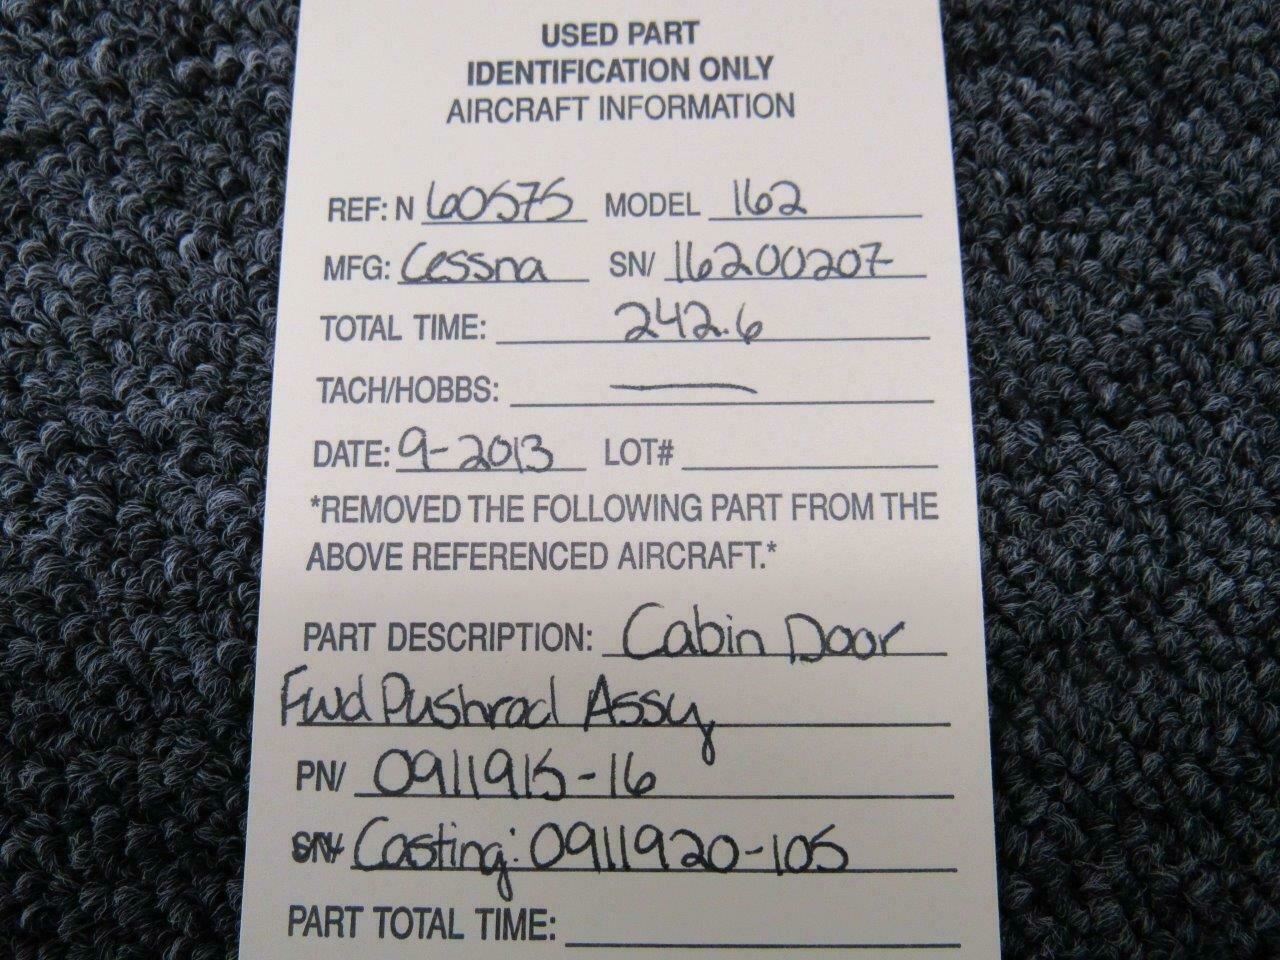 USED PART
IDENTIFICATION ONLY
AIRCRAFT INFORMATION
REF: N 60575 MODEL 162
MFG: Cessna SN/ 16200207
TOTAL TIME: 242.6
TACH/HOBBS: —
DATE: 9-2013 LOT#
*REMOVED THE FOLLOWING PART FROM THE
ABOVE REFERENCED AIRCRAFT.*
PART DESCRIPTION: Cabin Door
Fwd Pushrod Assy
PN/ 0911915-16
SN/ Casting: 0911920-105
PART TOTAL TIME: